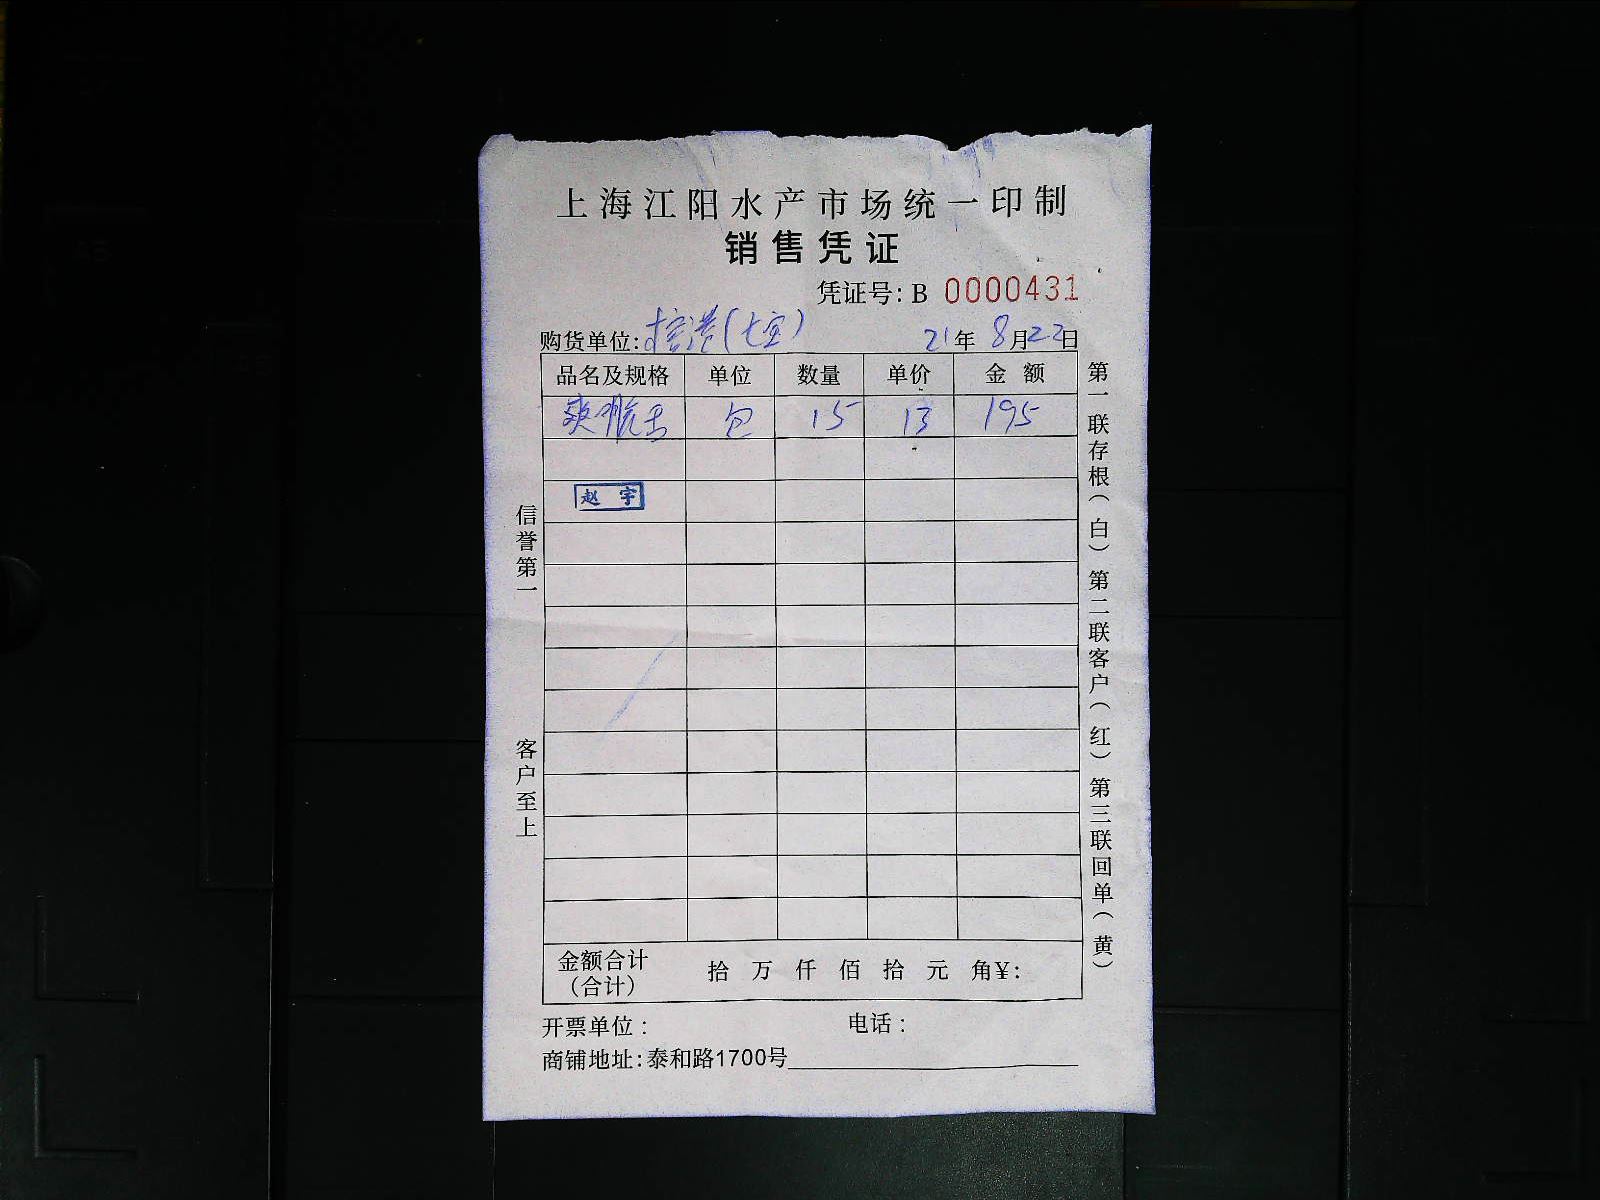 上海江阳水产市场统一印制
销售凭证
凭证号: B 0000431
购货单位: 港(七宝) 21年 8月22日
品名及规格 单位 数量 单价 金额
包 15 13 195
赵宇
信誉第一
客户至上
第一联存根(白) 第二联客户(红) 第三联回单(黄)
金额合计 拾 万 仟 佰 拾 元 角¥:
(合计)
开票单位: 电话:
商铺地址: 泰和路1700号